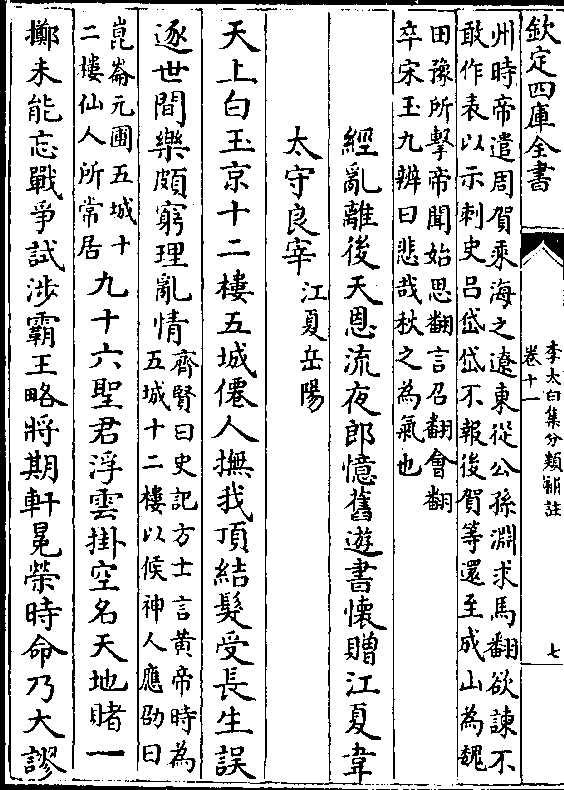 欽定四庫全書
李太白集分類補註
卷十一
七
州時帝遣周賀乘海之遼東從公孫淵求馬翻欲諫不
敢作表以示刺史吕岱岱不報後賀等還至成山為魏
田豫所擊帝聞始思翻言召翻會翻
卒宋玉九辨曰悲哉秋之為氣也
經亂離後天恩流夜郎憶舊遊書懷贈江夏韋
太守良宰江夏岳陽
天上白玉京十二樓五城僊人撫我頂結髮受長生誤
逐世間樂頗窮理亂情齊賢曰史記方士言黄帝時為
五城十二樓以候神人應劭曰
崑崙元圃五城十
二樓仙人所常居九十六聖君浮雲掛空名天地賭一
擲未能忘戰爭試涉霸王略將期軒冕榮時命乃大謬